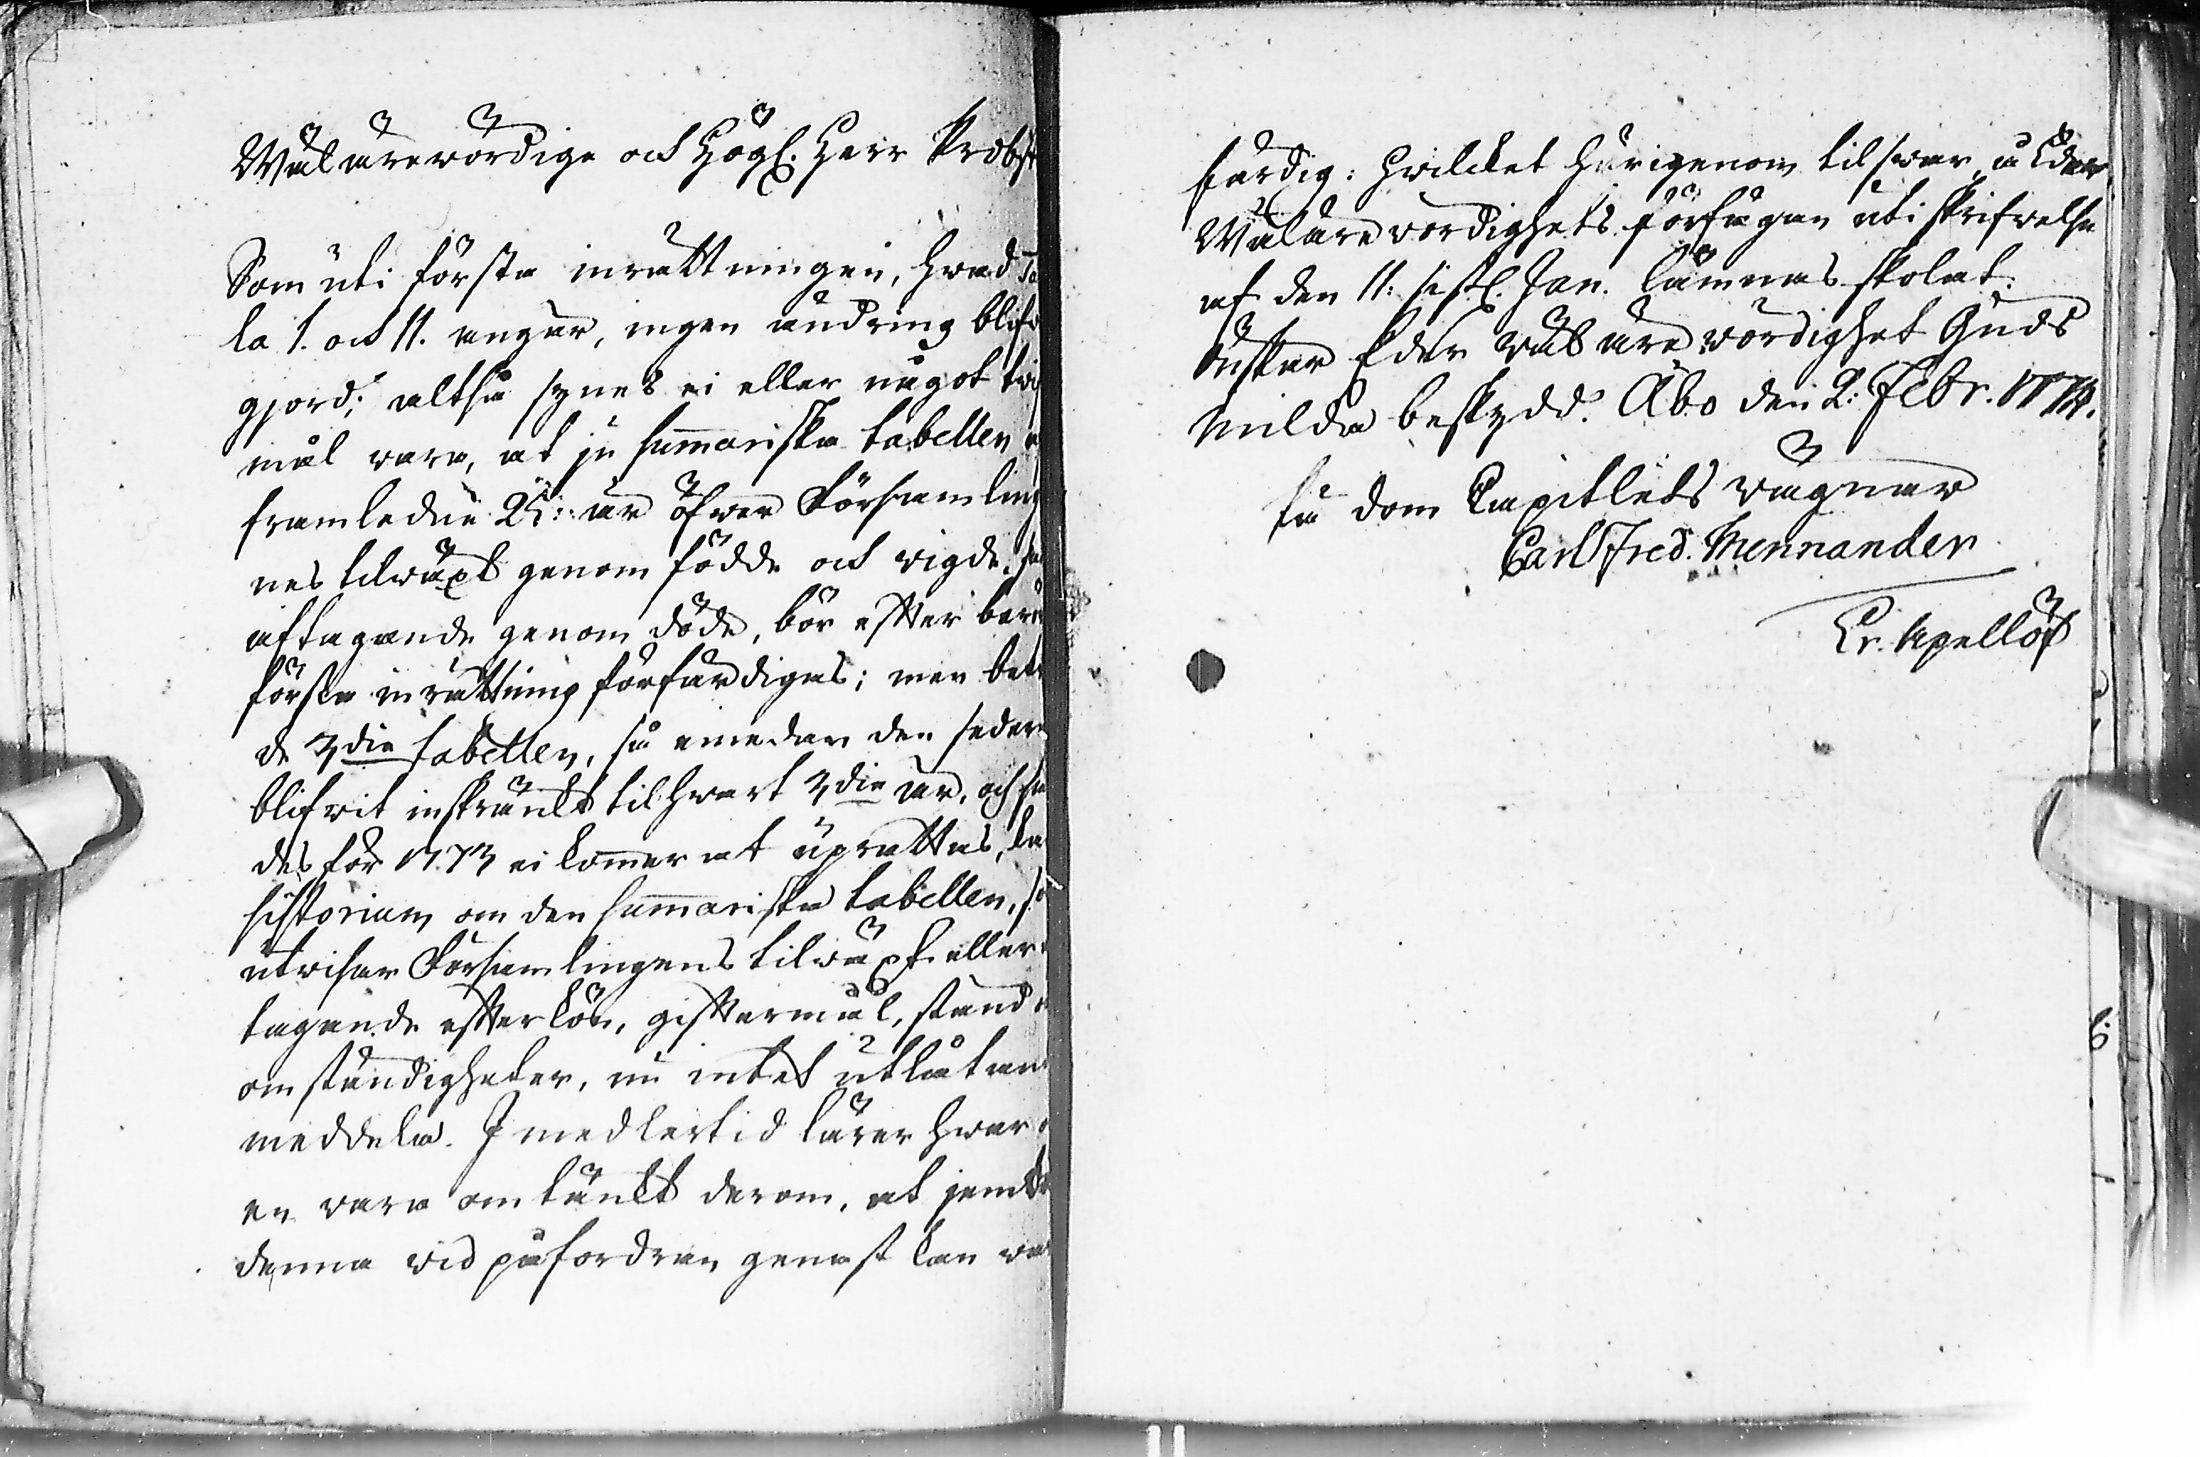 Wälärewördige och Högl. Herr Probst
Som uti första inrättningen, hwad Ta
la 1. och 11. angår, ingen ändring blifw
gjord; altså synes ei eller något twif
mål vara, at ju summariska tabellen
framledne 25: år öfwer Församling
nes tilwäxt genom födde och vigde,
aftagande genom döde, bör efter
första inrättning förfärdigas; men bet
de 3die tabellen, så emedan den seder
blifwit inskränkt til hwart 3die år, och
des för 1773 ei kommer at uprättas,
historiam om den summariska tabellen, så
utwisar Församlingens tilwäxt eller
tagande efter kön, giftermål, stånd
omständigheter, nu intet utlåtan
meddela. Imedlertid lärer hwar
en vara omtänkt derom, at jemwäl
denna vid påfordran genast kan wa
färdig: hwilcket härigenom til swar å Eder
Wälärevördighets förfrågan uti skrifwelse
af den 11. sistl. Jan. lämnas skolat.
Önskar Eder Wälärevördighet Guds
milda beskydd. Åbo den 2: Febr. 1774.
På Dom Capitlets vägnar
Carl Fred. Mennander
Er. Apellöf